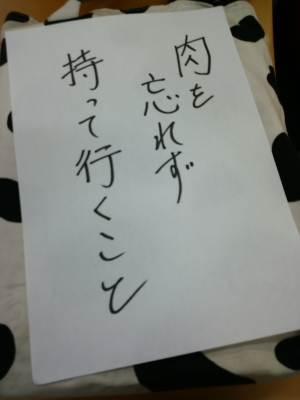 肉を
忘れず
持って行くこと